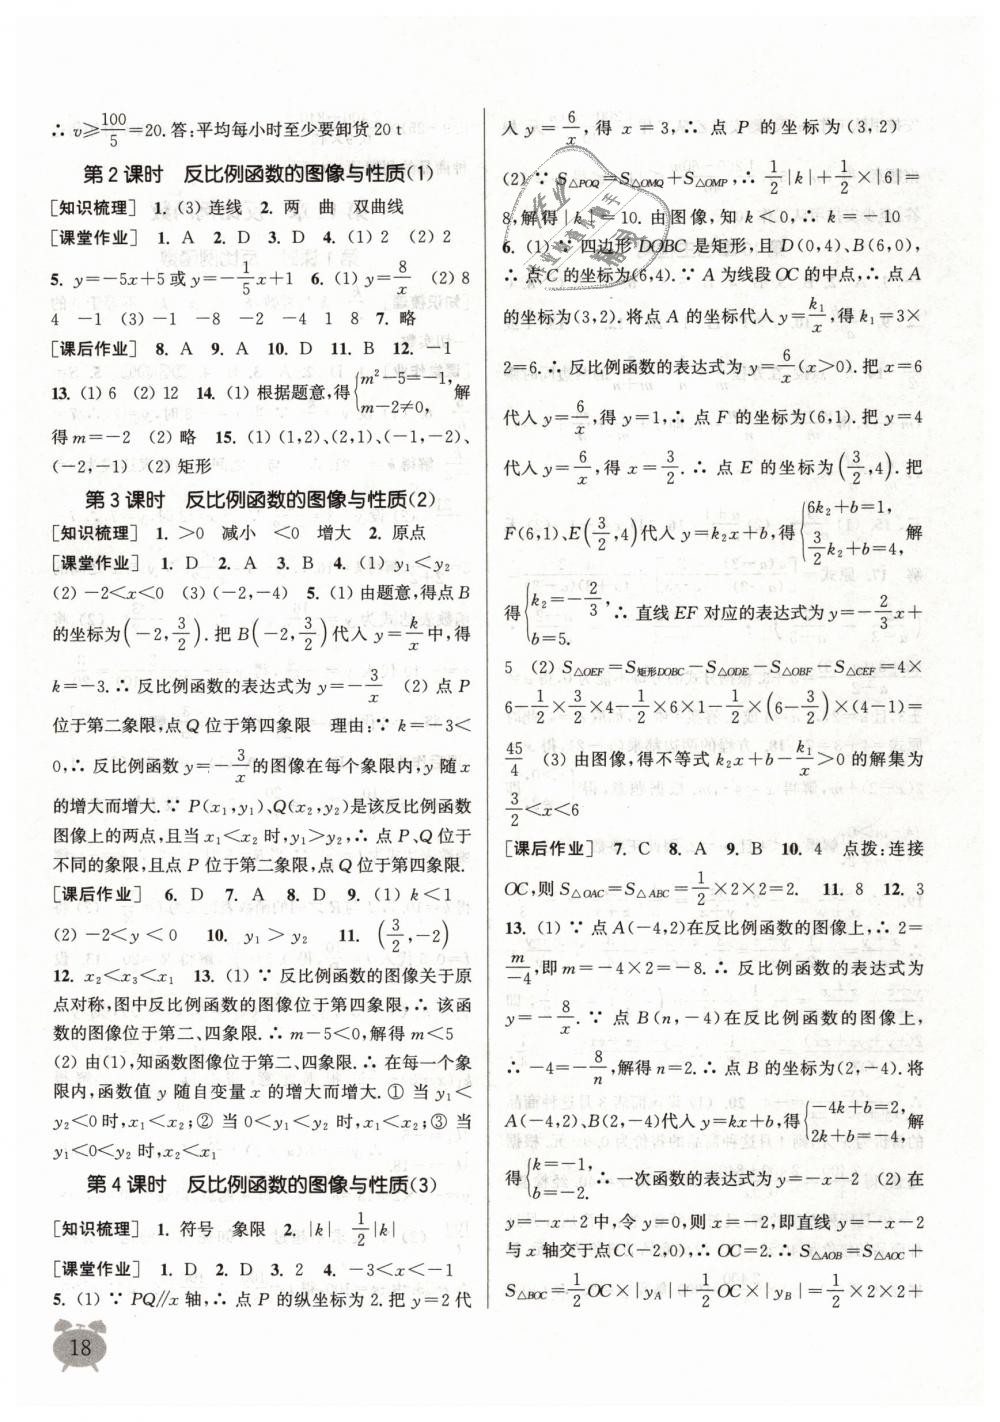 ∴ v≥100/5=20. 答:平均每小时至少要卸货 20 t
第 2 课时　反比例函数的图像与性质(1)
[知识梳理] 1. (3) 连线 2. 两 曲 双曲线
[课堂作业] 1. A 2. D 3. D 4. (1) 2 (2) 2
5. y=-5x+5 或 y=-1/5x+1 6. (1) y=8/x (2) 8
4 -1 (3) -1 -8 -2 -4 1 8 7. 略
[课后作业] 8. A 9. A 10. D 11. B 12. -1
13. (1) 6 (2) 12 14. (1) 根据题意,得{m²-5=-1, m-2≠0, 解
得 m=-2 (2) 略 15. (1) (1,2)、(2,1)、(-1,-2)、
(-2,-1) (2) 矩形
第 3 课时　反比例函数的图像与性质(2)
[知识梳理] 1. >0 减小 <0 增大 2. 原点
[课堂作业] 1. D 2. A 3. B 4. (1) y₁<y₂
(2) -2<x<0 (3) (-2,-4) 5. (1) 由题意,得点 B
的坐标为(-2,3/2). 把 B(-2,3/2)代入 y=k/x中,得
k=-3. ∴ 反比例函数的表达式为 y=-3/x (2) 点 P
位于第二象限,点 Q 位于第四象限 理由:∵ k=-3<
0,∴ 反比例函数 y=-3/x的图像在每个象限内,y 随 x
的增大而增大. ∵ P(x₁,y₁)、Q(x₂,y₂)是该反比例函数
图像上的两点,且当 x₁<x₂ 时,y₁>y₂,∴ 点 P、Q 位于
不同的象限,且点 P 位于第二象限,点 Q 位于第四象限.
[课后作业] 6. D 7. A 8. D 9. (1) k<1
(2) -2<y<0 10. y₁>y₂ 11. (3/2,-2)
12. x₂<x₃<x₁ 13. (1) ∵ 反比例函数的图像关于原
点对称,图中反比例函数的图像位于第四象限,∴ 该函
数的图像位于第二、四象限. ∴ m-5<0,解得 m<5
(2) 由(1),知函数图像位于第二、四象限. ∴ 在每一个象
限内,函数值 y 随自变量 x 的增大而增大. ① 当 y₁<
y₂<0 时,x₁<x₂;② 当 0<y₁<y₂ 时,x₁<x₂;③ 当
y₁<0<y₂ 时,x₂<x₁
第 4 课时　反比例函数的图像与性质(3)
[知识梳理] 1. 符号 象限 2. |k| 1/2|k|
[课堂作业] 1. D 2. D 3. 2 4. -3<x<-1
5. (1) ∵ PQ∥x 轴,∴ 点 P 的纵坐标为 2. 把 y=2 代
18
入 y=6/x,得 x=3,∴ 点 P 的坐标为(3,2)
(2) ∵ S△POQ=S△OMQ+S△OMP,∴ 1/2|k|+1/2×|6|=
8,解得|k|=10. 由图像,知 k<0,∴ k=-10
6. (1) ∵ 四边形 DOBC 是矩形,且 D(0,4)、B(6,0),
∴ 点 C 的坐标为(6,4). ∵ A 为线段 OC 的中点,∴ 点 A
的坐标为(3,2). 将点 A 的坐标代入 y=k₁/x,得 k₁=3×
2=6. ∴ 反比例函数的表达式为 y=6/x(x>0). 把 x=6
代入 y=6/x,得 y=1,∴ 点 F 的坐标为(6,1). 把 y=4
代入 y=6/x,得 x=3/2. ∴ 点 E 的坐标为(3/2,4). 把
F(6,1)、E(3/2,4)代入 y=k₂x+b,得{6k₂+b=1, 3/2k₂+b=4, 解
得{k₂=-2/3, b=5. ∴ 直线 EF 对应的表达式为 y=-2/3x+
5 (2) S△OEF=S矩形DOBC-S△ODE-S△OBF-S△CEF=4×
6-1/2×3/2×4-1/2×6×1-1/2×(6-3/2)×(4-1)=
45/4 (3) 由图像,得不等式 k₂x+b-k₁/x>0 的解集为
3/2<x<6
[课后作业] 7. C 8. A 9. B 10. 4 点拨:连接
OC,则 S△OAC=S△ABC=1/2×2×2=2. 11. 8 12. 3
13. (1) ∵ 点 A(-4,2)在反比例函数的图像上,∴ 2=
m/-4,即 m=-4×2=-8. ∴ 反比例函数的表达式为
y=-8/x. ∵ 点 B(n,-4)在反比例函数的图像上,
∴ -4=-8/n,解得 n=2. ∴ 点 B 的坐标为(2,-4). 将
A(-4,2)、B(2,-4)代入 y=kx+b,得{-4k+b=2, 2k+b=-4, 解
得{k=-1, b=-2. ∴ 一次函数的表达式为 y=-x-2 (2) 在
y=-x-2 中,令 y=0,则 x=-2,即直线 y=-x-2
与 x 轴交于点 C(-2,0),∴ OC=2. ∴ S△AOB=S△AOC+
S△BOC=1/2OC×|yA|+1/2OC×|yB|=1/2×2×2+